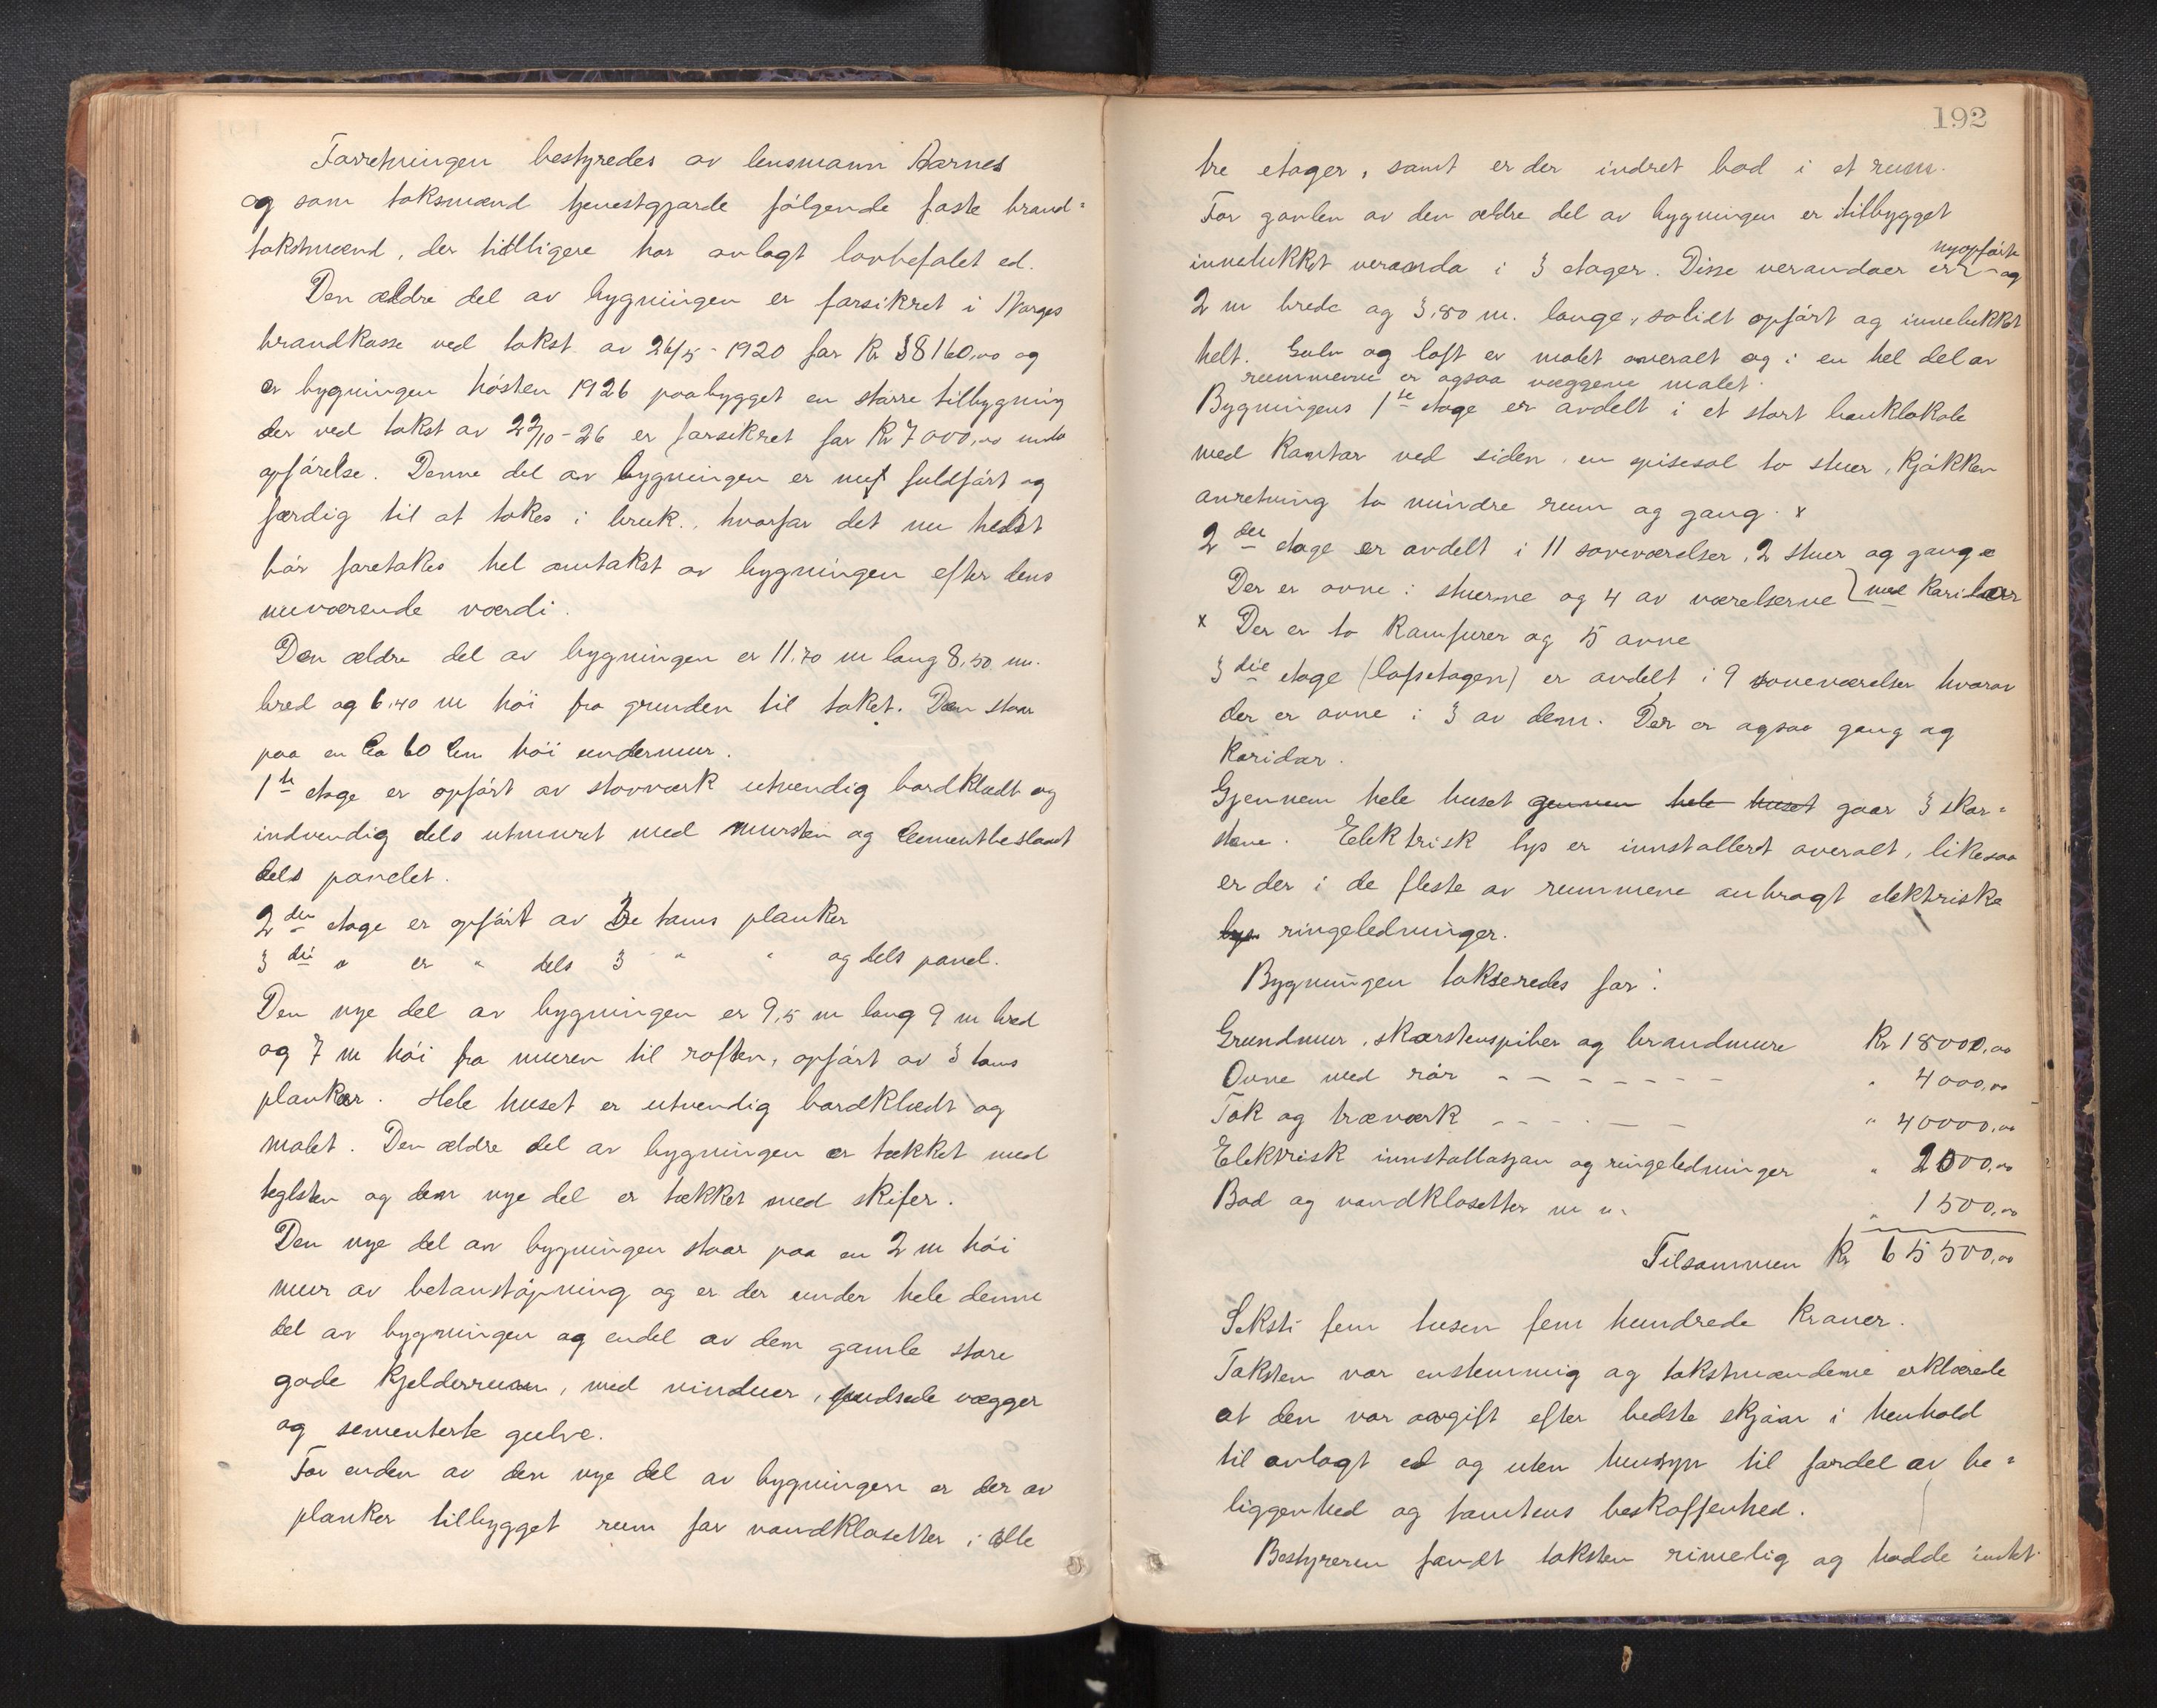 Forretningen bestyredes av lensmann Aarnes
og som taksmænd tjenestgjorde følgende faste brand=
takstmænd, der tidligere har avlagt lovbefalet ed.
Den ældre del av bygningen er forsikret i Norges
brandkasse ved takst av 26/5-1920 for Kr 38160,00 og
er bygningen høsten 1926 paabygget en større tilbygning
der ved takst av 22/10-26 er forsikret for Kr 7000,00 under
opførelse. Denne del av bygningen er nu fuldført og
færdig til at takes i bruk., hvorfor det nu helst
bør foretakes hel omtakst av bygningen efter dens
nuværende værdi.
Den ældre del av bygningen er 11.70 m lang 8,50 m.
bred og 6.40 m høi fra grunden til taket. Den staar
paa en Ca 60 Cm høi undermur.
1ste etage er opført av stavværk utvendig bordklædt og
indvendig dels utmuret med mursten og Cementbeslaaet
dels panelet.
2den etage er opført av 3 toms planker
3die " er " dels 3 " " og dels panel.
Den nye del av bygningen er 9,5 m lang 9 m bred
og 7 m høi fra muren til roften, opført av 3 toms
planker. Hele huset er utvendig bordklædt og
malet. Den ældre del av bygningen er tækket med
teglsten og den nye del er tækket med skifer.
Den nye del av bygningen staar paa en 2 m høi
mur av betonstøpning og er der under hele denne
del av bygningen og endel av den gamle store
gode kjelderrum, med vinduer, pudsede vægger
og sementerte gulve.
For enden av den nye del av bygningen er der av
planker tilbygget rum for vandklosetter i alle
192
tre etager, samt er der indret bad i et rum.
For gavlen av den ældre del av bygningen er tilbygget
nyopførte
innelukket veranda i 3 etager. Disse verandaer er og
2 m brede og 3,80 m. lange, solidt opført og innelukket
helt. Gulv og loft er malet overalt og i en hel del av
rummerne er ogsaa væggene malet.
Bygningens 1ste etage er avdelt i et stort banklokale
med Kontor ved siden, en spisesal to stuer, Kjøkken
anretning to mindre rum og gang. x
2den etage er avdelt i 11 soveværelser, 2 stuer og gange
Der er ovne i stuerne og 4 av værelserne med Koridorer
x Der er to Komfurer og 5 ovne
3die etage (loftsetagen) er avdelt i 9 soveværelser hvorav
der er ovne i 3 av dem. Der er ogsaa gang og
Koridor.
Gjennem hele huset gennem hele huset gaar 3 skor=
stene. Elektrisk lys er innstallert overalt, likesaa
er der i de fleste av rummene anbragt elektriske
lys ringeledninger.
Bygningen takseredes for:
Grundmur, skorstenspiber og brandmure Kr 18000,00
Ovne med rør - - - - - - - " 4000,00
Tak og træværk - - - - - - " 40000,00
Elektrisk innstallasjon og ringeledninger " 2000,00
Bad og vandklosetter m m. " 1500,00
Tilsammen Kr 65500,00
Seksti fem tusen fem hundrede Kroner.
Taksten var enstemmig og takstmændene erklærede
at den var avgift efter bedste skjøn i henhold
til avlagt ed og uten hensyn til fordel av be=
liggenhed og tomtens beskaffenhed.
Bestyreren fandt taksten rimelig og hadde intet